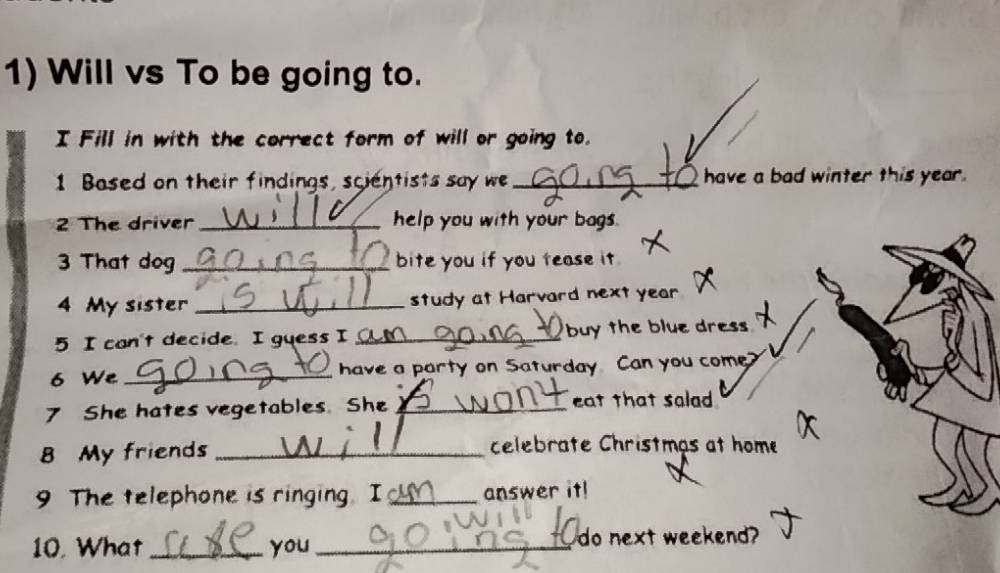 1) Will vs To be going to.
I Fill in with the correct form of will or going to.
1 Based on their findings, scientists say we going to have a bad winter this year.
2 The driver will help you with your bags.
3 That dog going to bite you if you tease it.
4 My sister is will study at Harvard next year.
5 I can't decide. I guess I am going to buy the blue dress.
6 We going to have a party on Saturday. Can you come?
7 She hates vegetables. She is won't eat that salad.
8 My friends will celebrate Christmas at home
9 The telephone is ringing. I am answer it!
10. What you will going to do next weekend?